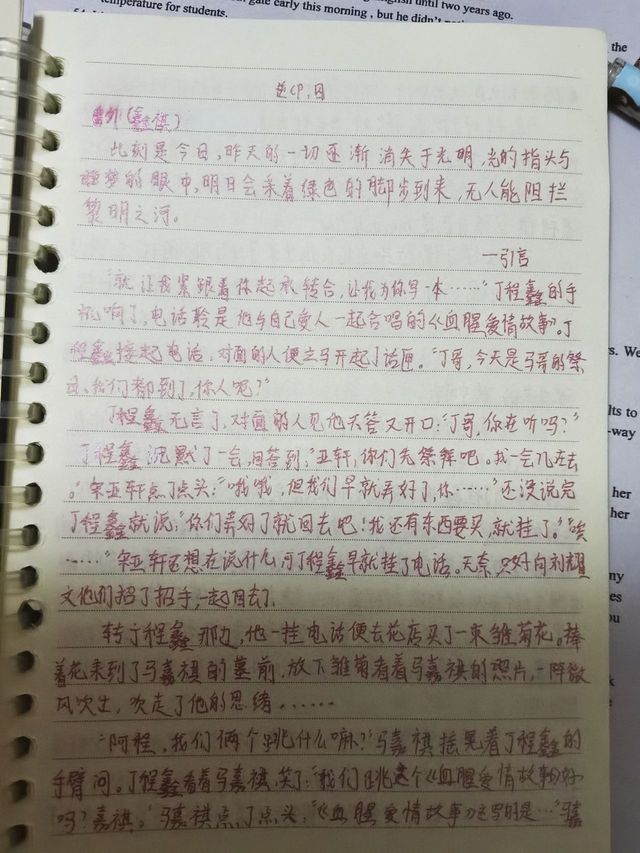 temperature for students.
gate early this morning, but he didn't
English until two years ago.
the
逆CP,囚
番外(鑫祺)
此刻是今日,昨天的一切逐渐消失于光明,光的指头与
噩梦的眼中,明日会来着绿色的脚步到来,无人能阻拦
黎明之河。
—引言
"就让我紧跟着你起承转合,让我为你写一本……"丁程鑫的手
机响了,电话聆是他与自己爱人一起合唱的《血腥爱情故事》。丁
程鑫接起电话,对面的人便立马开起了话匣。"丁哥,今天是马哥的祭
日,我们都到了,你人呢?"
丁程鑫无言了,对面的人见他不答又开口:"丁哥,你在听吗?"
丁程鑫沉默了一会,回答到:"亚轩,你们先祭拜吧。我一会儿在去
。"宋亚轩点了点头:"哦哦,但我们早就弄好了,你……"还没说完
丁程鑫就说:"你们弄好了就回去吧!我还有东西要买,就挂了。"诶
……"宋亚轩还想在说什么,可丁程鑫早就挂了电话。无奈,只好向刘耀
文他们招了招手,一起回去了.
转丁程鑫那边,他一挂电话便去花店买了一束雏菊花。捧
着花来到了马嘉祺的墓前,放下雏菊看着马嘉祺的照片,一阵微
风吹过,吹走了他的思绪......
"阿程,我们俩个跳什么嘛?"马嘉祺摇晃着丁程鑫的
手臂问。丁程鑫看着马嘉祺,笑了:"我们跳这个《血腥爱情故事》好
吗?嘉祺。"马嘉祺点了点头:"《血腥爱情故事》这写的是…"
s. We
lts to
-way
her
her
ny
es
ou
k